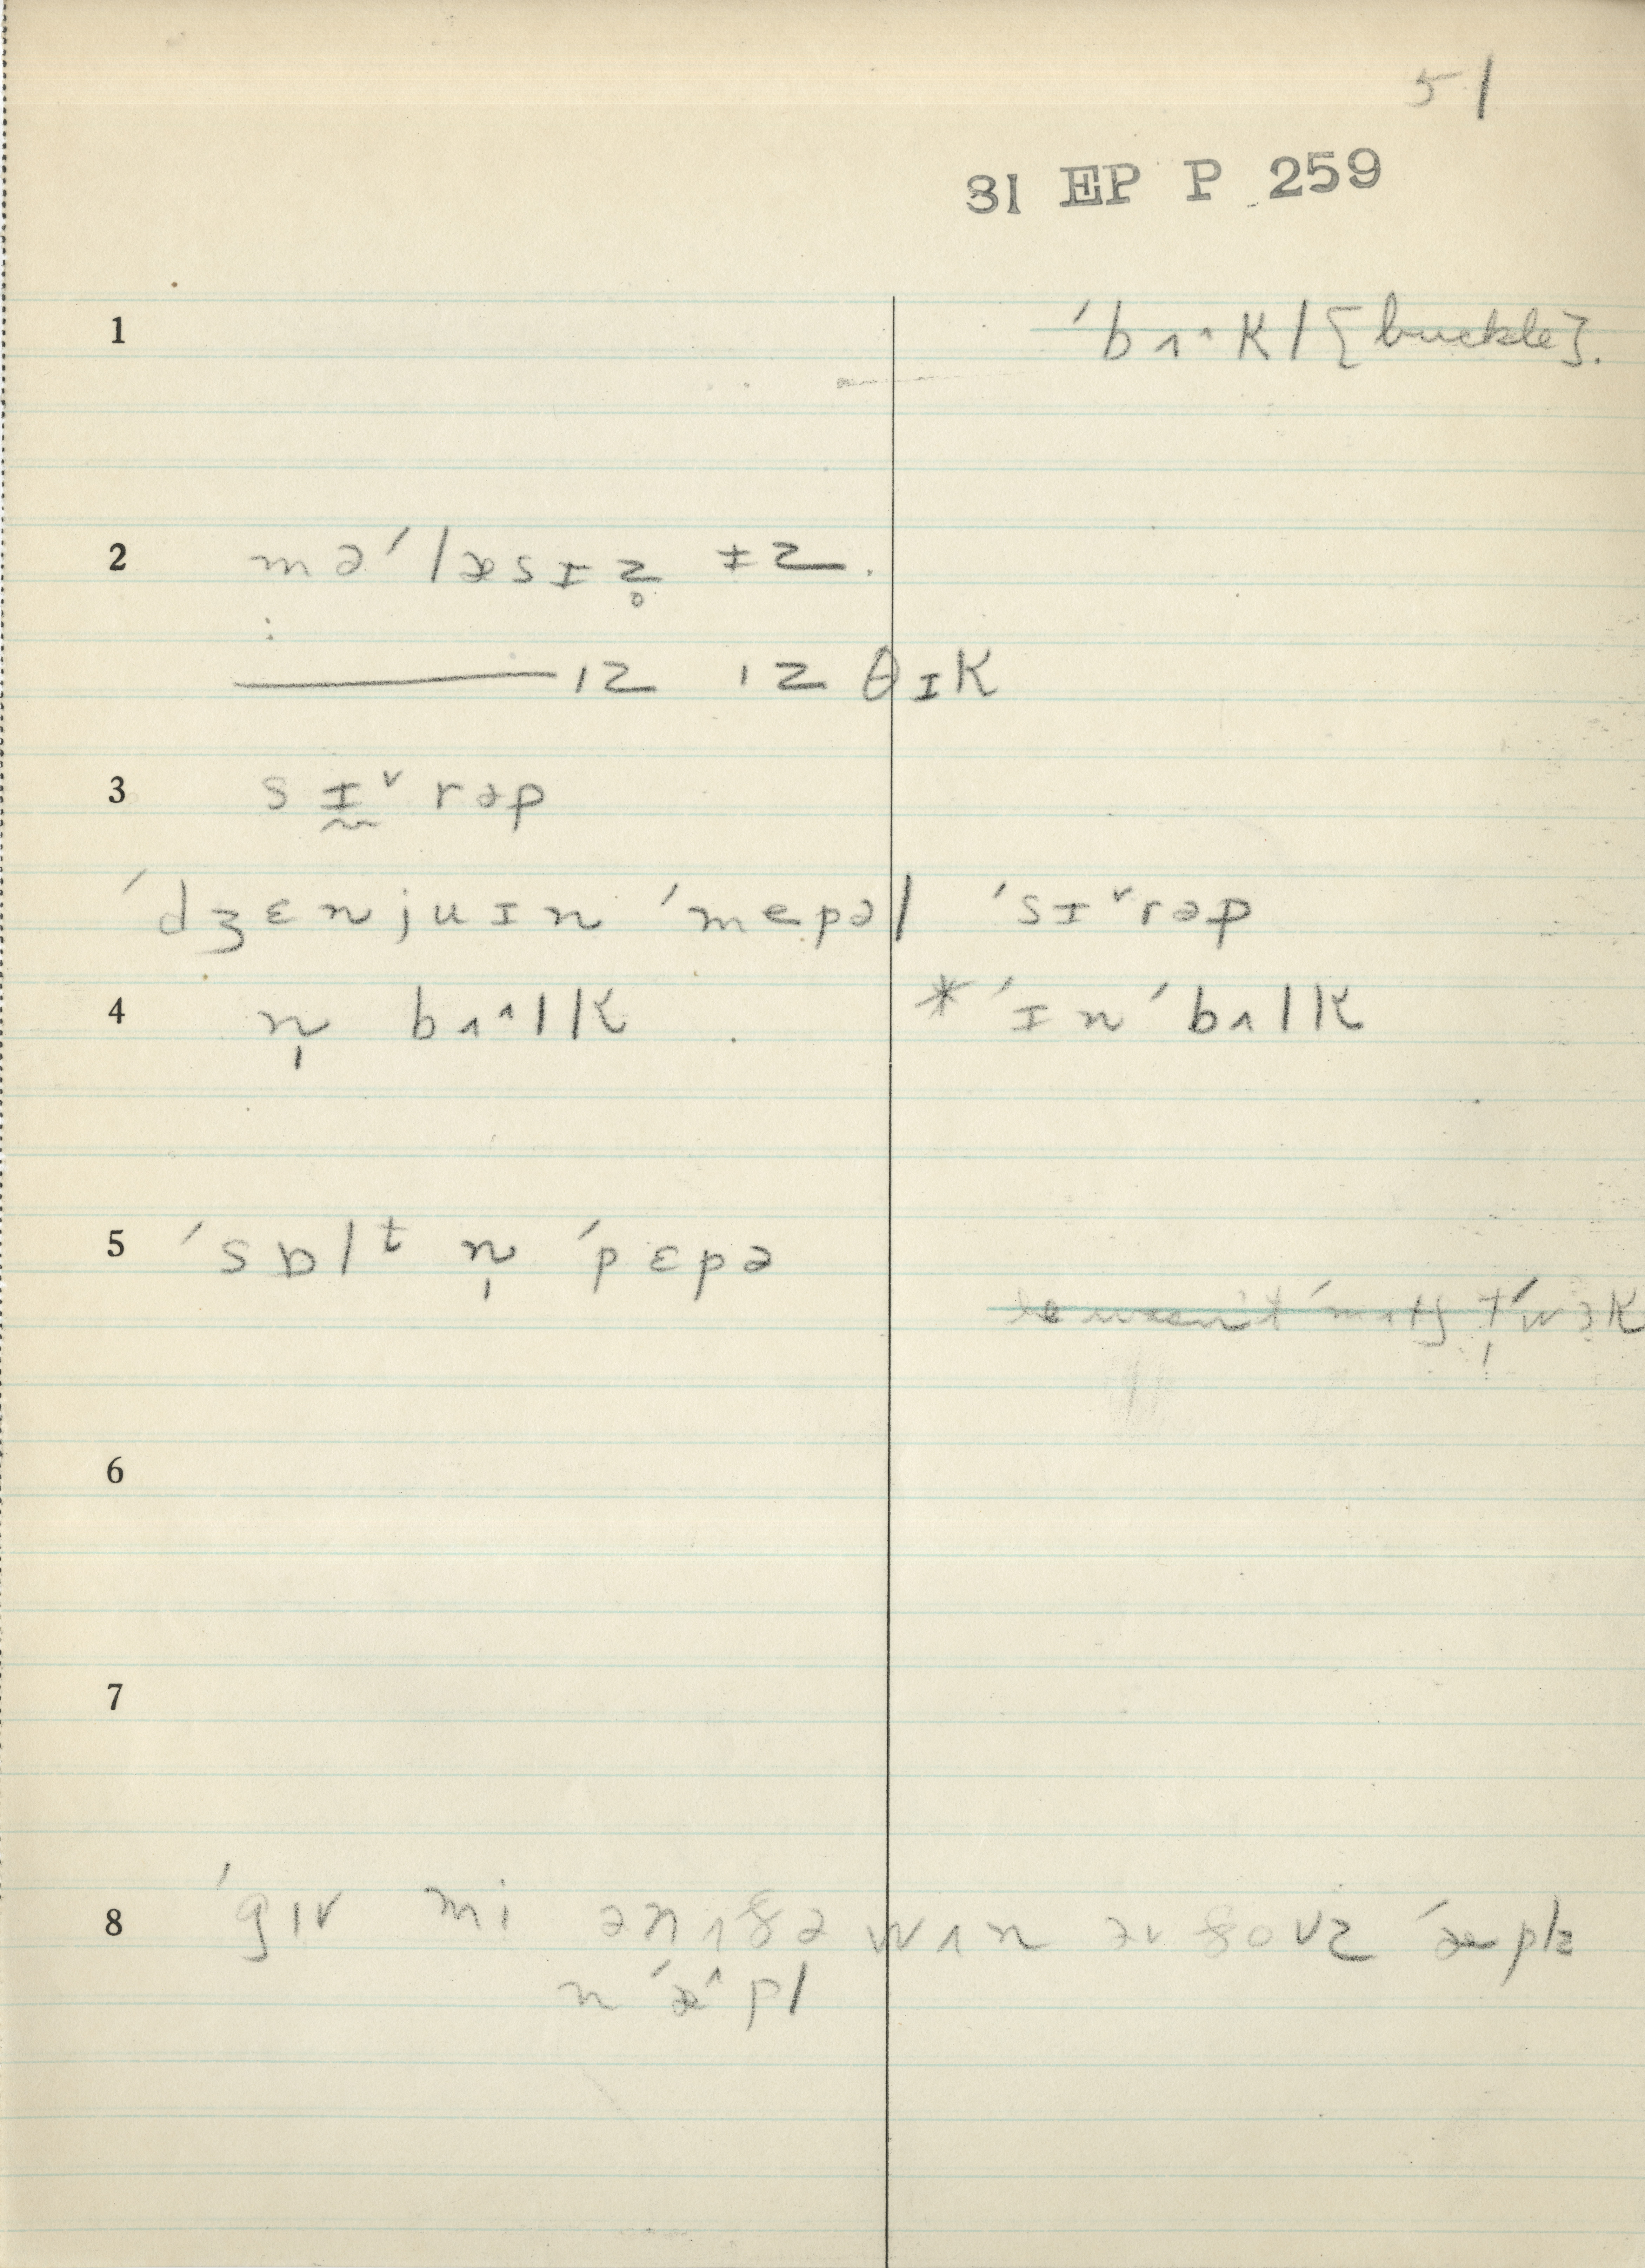 51
31 EP P 259
1 ˊbʌ^kl {buckle}.
2 məˊlæsɪz̥ ɪz.
———ız ız θɪk
3 sɪ̰ˇrəp
ˊdʒɛnjuɪn ˊmepəl ˊsɪˇrəp
4 n̩ bʌ^lk *ˊɪnˊbʌlk
5 ˊsɒlᵗ n̩ ˊpɛpə
he wasn't
6
7
8 ˊgıv mi ənʌðə wʌn əv ðovz ˊæplz
nˊæ^pl